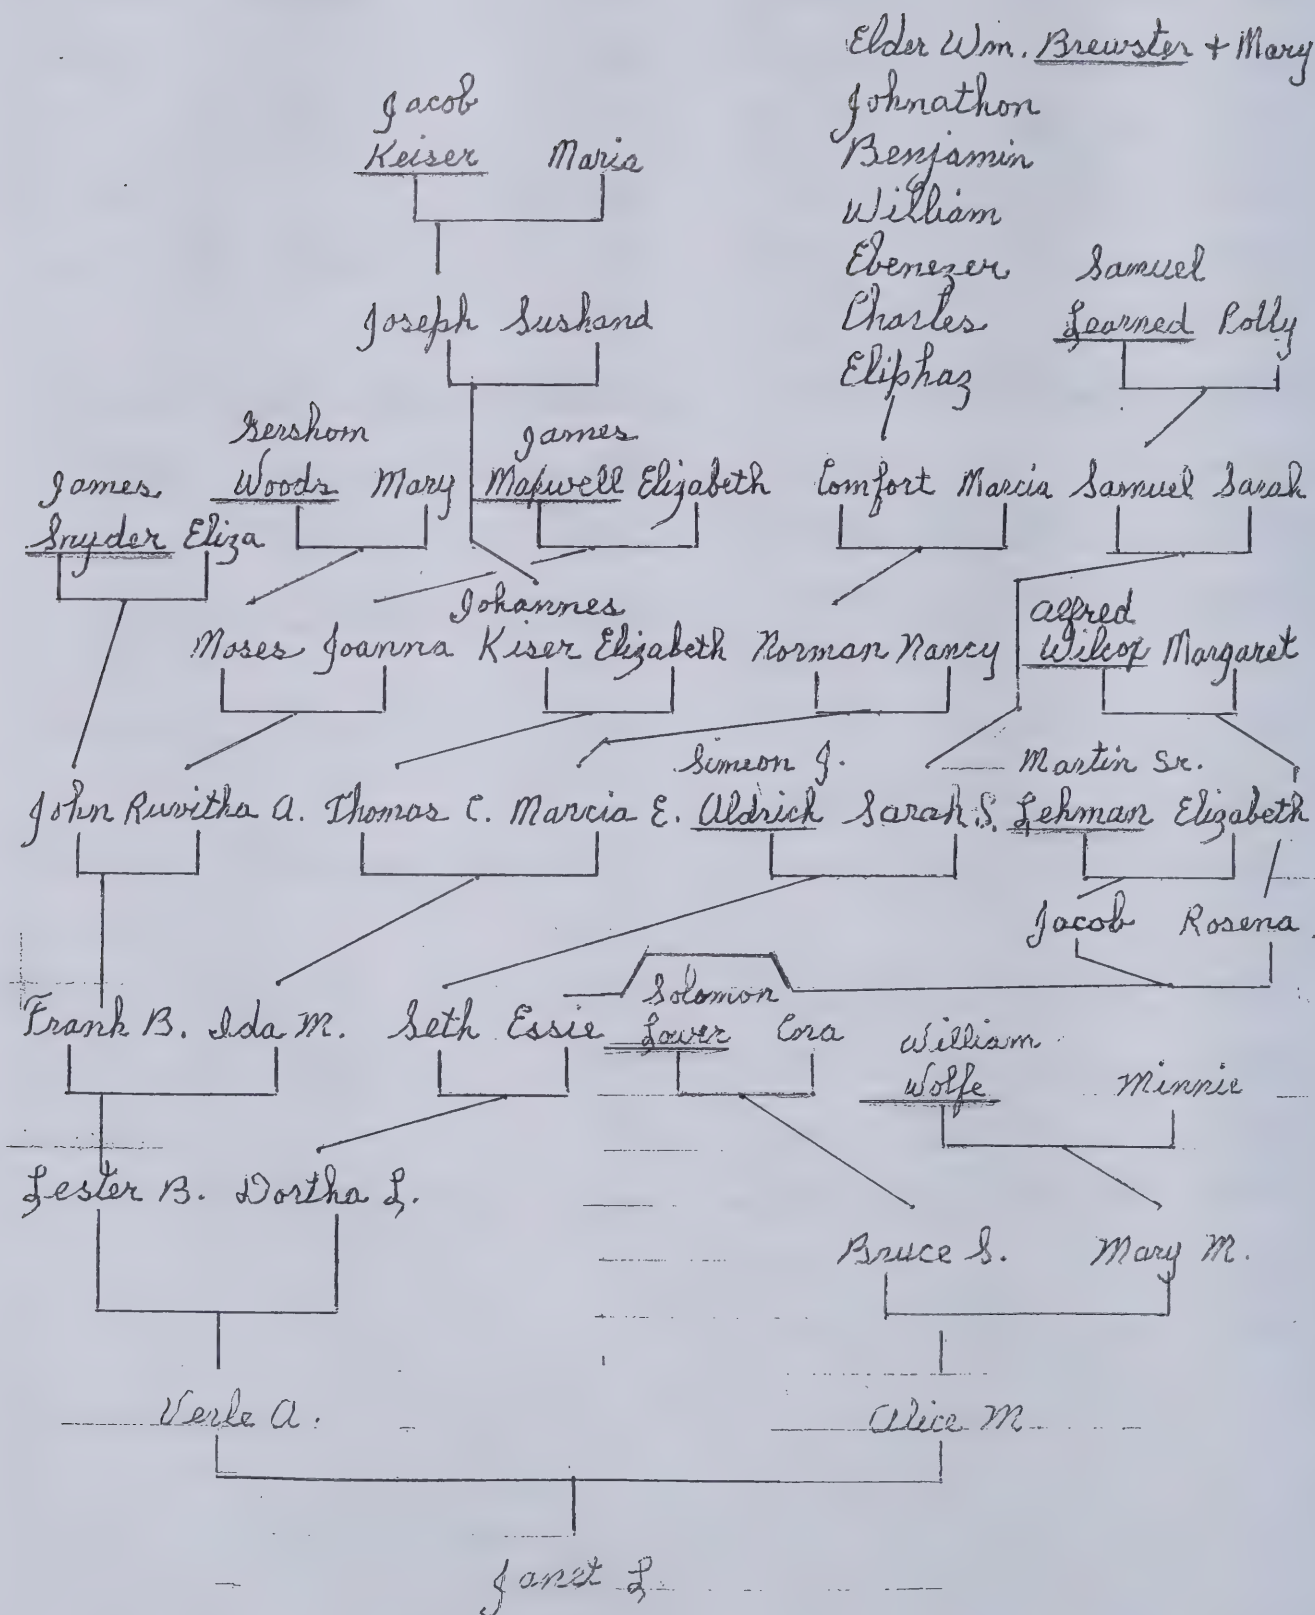 Elder Wm. Brewster + Mary
Johnathon
Benjamin
William
Ebenezer
Charles
Eliphaz
Jacob
Keiser Maria
Joseph Sushand
Samuel
Learned Polly
Gershom
Woods Mary
James
Maxwell Elizabeth
Comfort Marcia Samuel Sarah
James
Snyder Eliza
Moses Joanna
Johannes
Kiser Elizabeth
Norman Nancy
Alfred
Wilcox Margaret
John Ruvitha A. Thomas C. Marcia E.
Simeon J.
Aldrich Sarah S.
Martin Sr.
Lehman Elizabeth
Jacob Rosena
Frank B. Ida M. Seth Essie
Solomon
Lower
William
Wolfe Minnie
Lester B. Dortha L.
Bruce S. Mary M.
Verle A. Alice M
Janet L